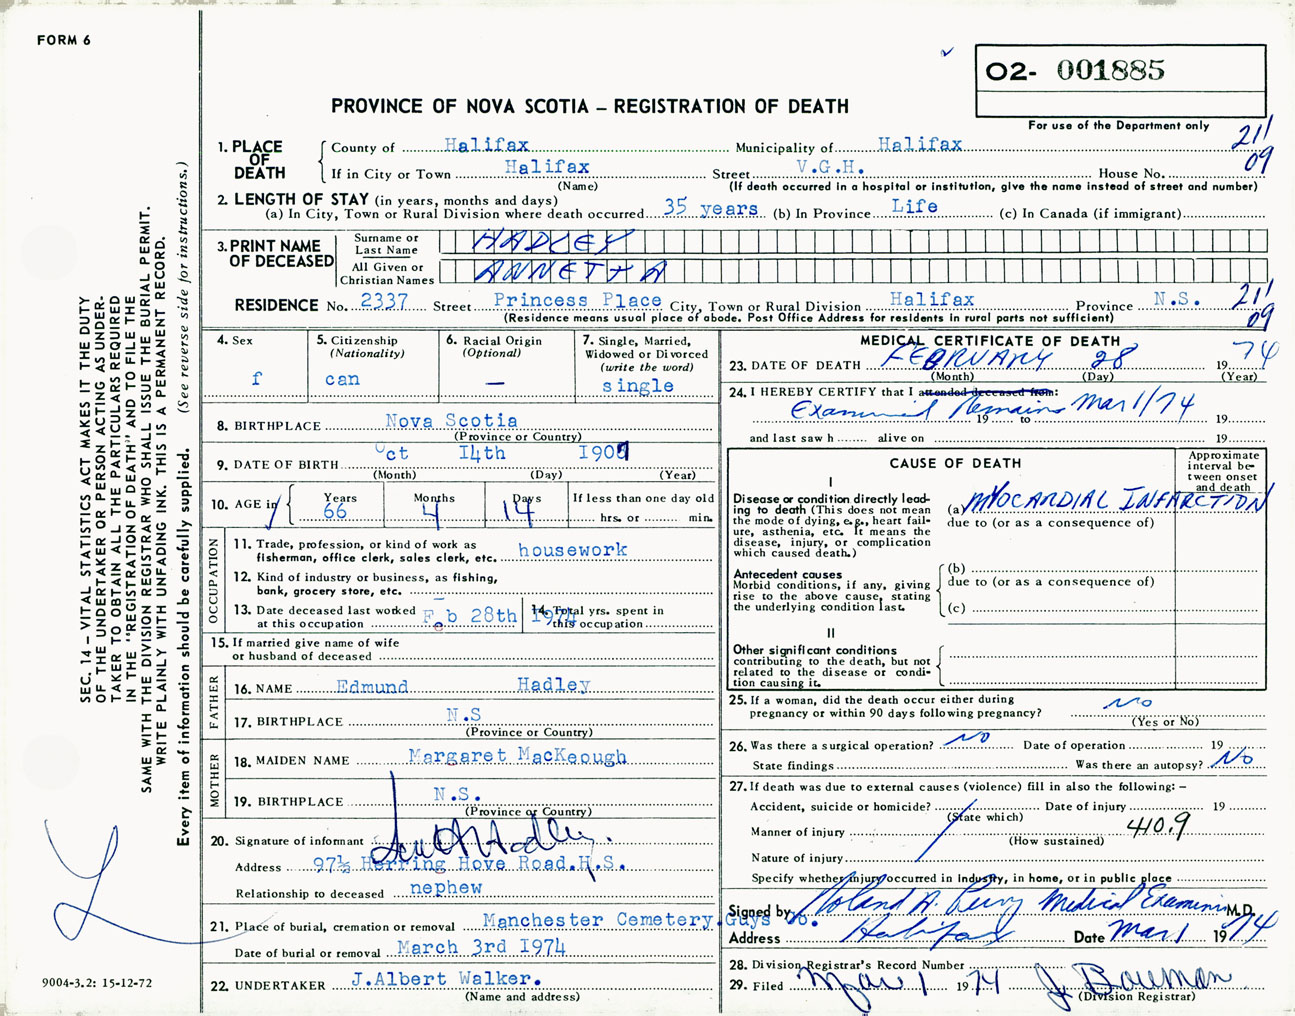 FORM 6
O2- 001885
PROVINCE OF NOVA SCOTIA – REGISTRATION OF DEATH
For use of the Department only
1. PLACE OF DEATH
County of Halifax Municipality of Halifax 211
If in City or Town Halifax Street V.G.H. House No. 09
(Name) (If death occurred in a hospital or institution, give the name instead of street and number)
2. LENGTH OF STAY (in years, months and days)
(a) In City, Town or Rural Division where death occurred 35 years (b) In Province Life (c) In Canada (if immigrant)
3. PRINT NAME OF DECEASED
Surname or Last Name HADLEY
All Given or Christian Names ANNETTA
RESIDENCE No. 2337 Street Princess Place City, Town or Rural Division Halifax Province N.S. 211
(Residence means usual place of abode. Post Office Address for residents in rural parts not sufficient) 09
4. Sex
f
5. Citizenship
(Nationality)
can
6. Racial Origin
(Optional)
—
7. Single, Married,
Widowed or Divorced
(write the word)
single
8. BIRTHPLACE Nova Scotia
(Province or Country)
9. DATE OF BIRTH Oct 14th 1907
(Month) (Day) (Year)
10. AGE in
Years 66
Months 4
Days 14
If less than one day old
hrs. or min.
OCCUPATION
11. Trade, profession, or kind of work as
fisherman, office clerk, sales clerk, etc. housework
12. Kind of industry or business, as fishing,
bank, grocery store, etc.
13. Date deceased last worked
at this occupation Feb 28th 1974
14. Total yrs. spent in
this occupation
15. If married give name of wife
or husband of deceased
FATHER
16. NAME Edmund Hadley
17. BIRTHPLACE N.S
(Province or Country)
MOTHER
18. MAIDEN NAME Margaret MacKeough
19. BIRTHPLACE N.S.
(Province or Country)
20. Signature of informant Hadley.
Address 97½ Herring Hove Road.H.S.
Relationship to deceased nephew
21. Place of burial, cremation or removal Manchester Cemetery.Guys Co.
Date of burial or removal March 3rd 1974
22. UNDERTAKER J.Albert Walker.
(Name and address)
MEDICAL CERTIFICATE OF DEATH
23. DATE OF DEATH FEBRUARY 28 1974
(Month) (Day) (Year)
24. I HEREBY CERTIFY that I attended deceased from:
Examined Remains Mar 1/74 19
19 to
and last saw h alive on 19
CAUSE OF DEATH
Approximate
interval be-
tween onset
and death
I
Disease or condition directly lead-
ing to death (This does not mean
the mode of dying, e.g., heart fail-
ure, asthenia, etc. It means the
disease, injury, or complication
which caused death.)
(a) MYOCARDIAL INFARCTION
due to (or as a consequence of)
Antecedent causes
Morbid conditions, if any, giving
rise to the above cause, stating
the underlying condition last.
(b)
due to (or as a consequence of)
(c)
II
Other significant conditions
contributing to the death, but not
related to the disease or condi-
tion causing it.
25. If a woman, did the death occur either during
pregnancy or within 90 days following pregnancy? No
(Yes or No)
26. Was there a surgical operation? No Date of operation 19
State findings Was there an autopsy? No
27. If death was due to external causes (violence) fill in also the following: –
Accident, suicide or homicide? Date of injury 19
(State which)
Manner of injury 410.9
(How sustained)
Nature of injury
Specify whether injury occurred in Industry, in home, or in public place
Signed by Roland A. Perry Medical Examiner M.D.
Address Halifax Date Mar 1 1974
28. Division Registrar's Record Number
29. Filed Mar 1 1974 J. Bowman
(Division Registrar)
SEC. 14 – VITAL STATISTICS ACT MAKES IT THE DUTY
OF THE UNDERTAKER OR PERSON ACTING AS UNDER-
TAKER TO OBTAIN ALL THE PARTICULARS REQUIRED
IN THE "REGISTRATION OF DEATH" AND TO FILE THE
SAME WITH THE DIVISION REGISTRAR WHO SHALL ISSUE THE BURIAL PERMIT.
WRITE PLAINLY WITH UNFADING INK. THIS IS A PERMANENT RECORD.
Every item of information should be carefully supplied. (See reverse side for instructions.)
9004-3.2: 15-12-72